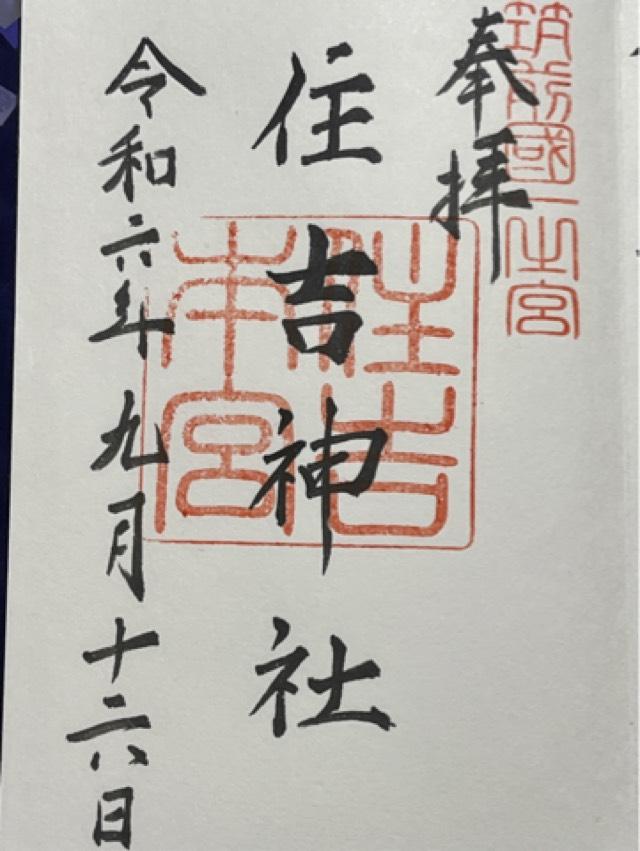 筑前國一之宮
奉拝
住吉神社
住吉
本宮
令和六年九月十六日